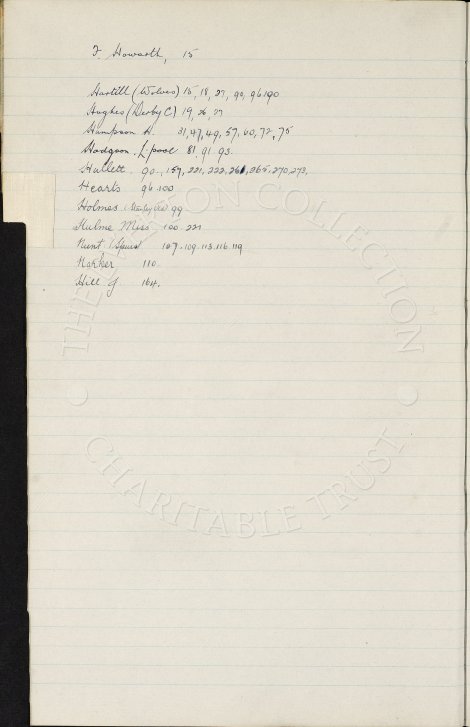 F. Howarth, 15
Hartill (Wolves) 15, 18, 27, 90, 96, 190
Hughes (Derby C) 19, 26, 27
Hampson H. 31, 47, 49, 57, 60, 72, 75
Hodgson. L'pool 81. 91. 93.
Hallett 90, 157, 221, 222, 261, 265, 270, 273,
Hearts 96. 100
Holmes 99
Hulme Miss 100. 221
Hunt (Spurs) 107. 109. 113. 116. 119
110
Hill G. 164.
THE COLLECTION
CHARITABLE TRUST